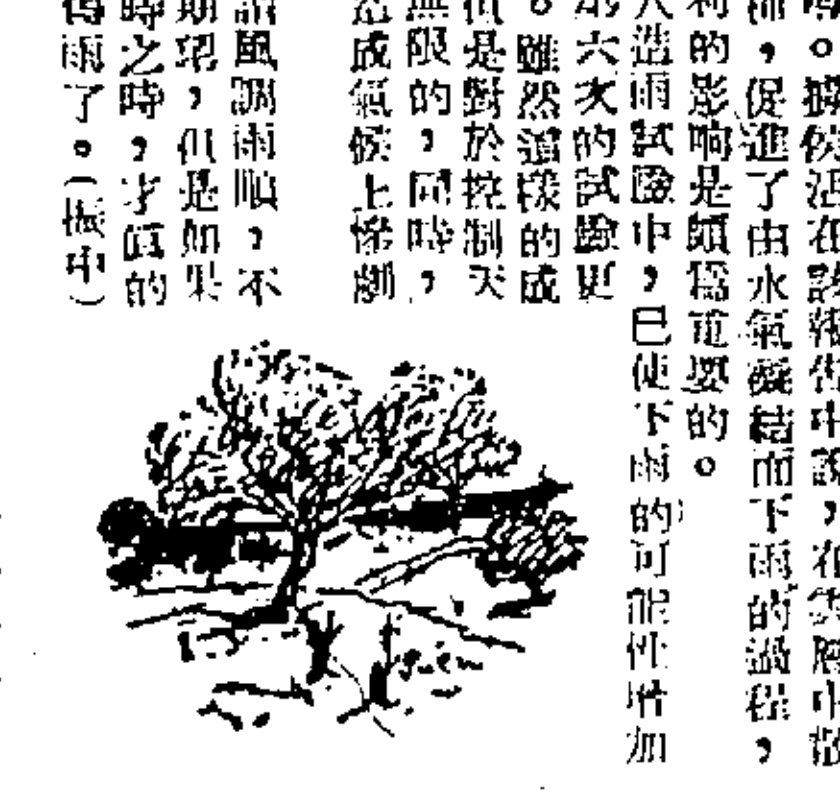 。據侯活在該報告中說，在雲層中散
，促進了由水氣凝結而下雨的過程，
利的影响是頗爲重要的。
人造雨試驗中，已使下雨的可能性增加
六次的試驗更
。雖然這樣的成
但是對於控制天
無限的，同時，
成氣候上慘劇
謂風調雨順，不
期望，但是如果
時之時，才值的
得雨了。（振中）